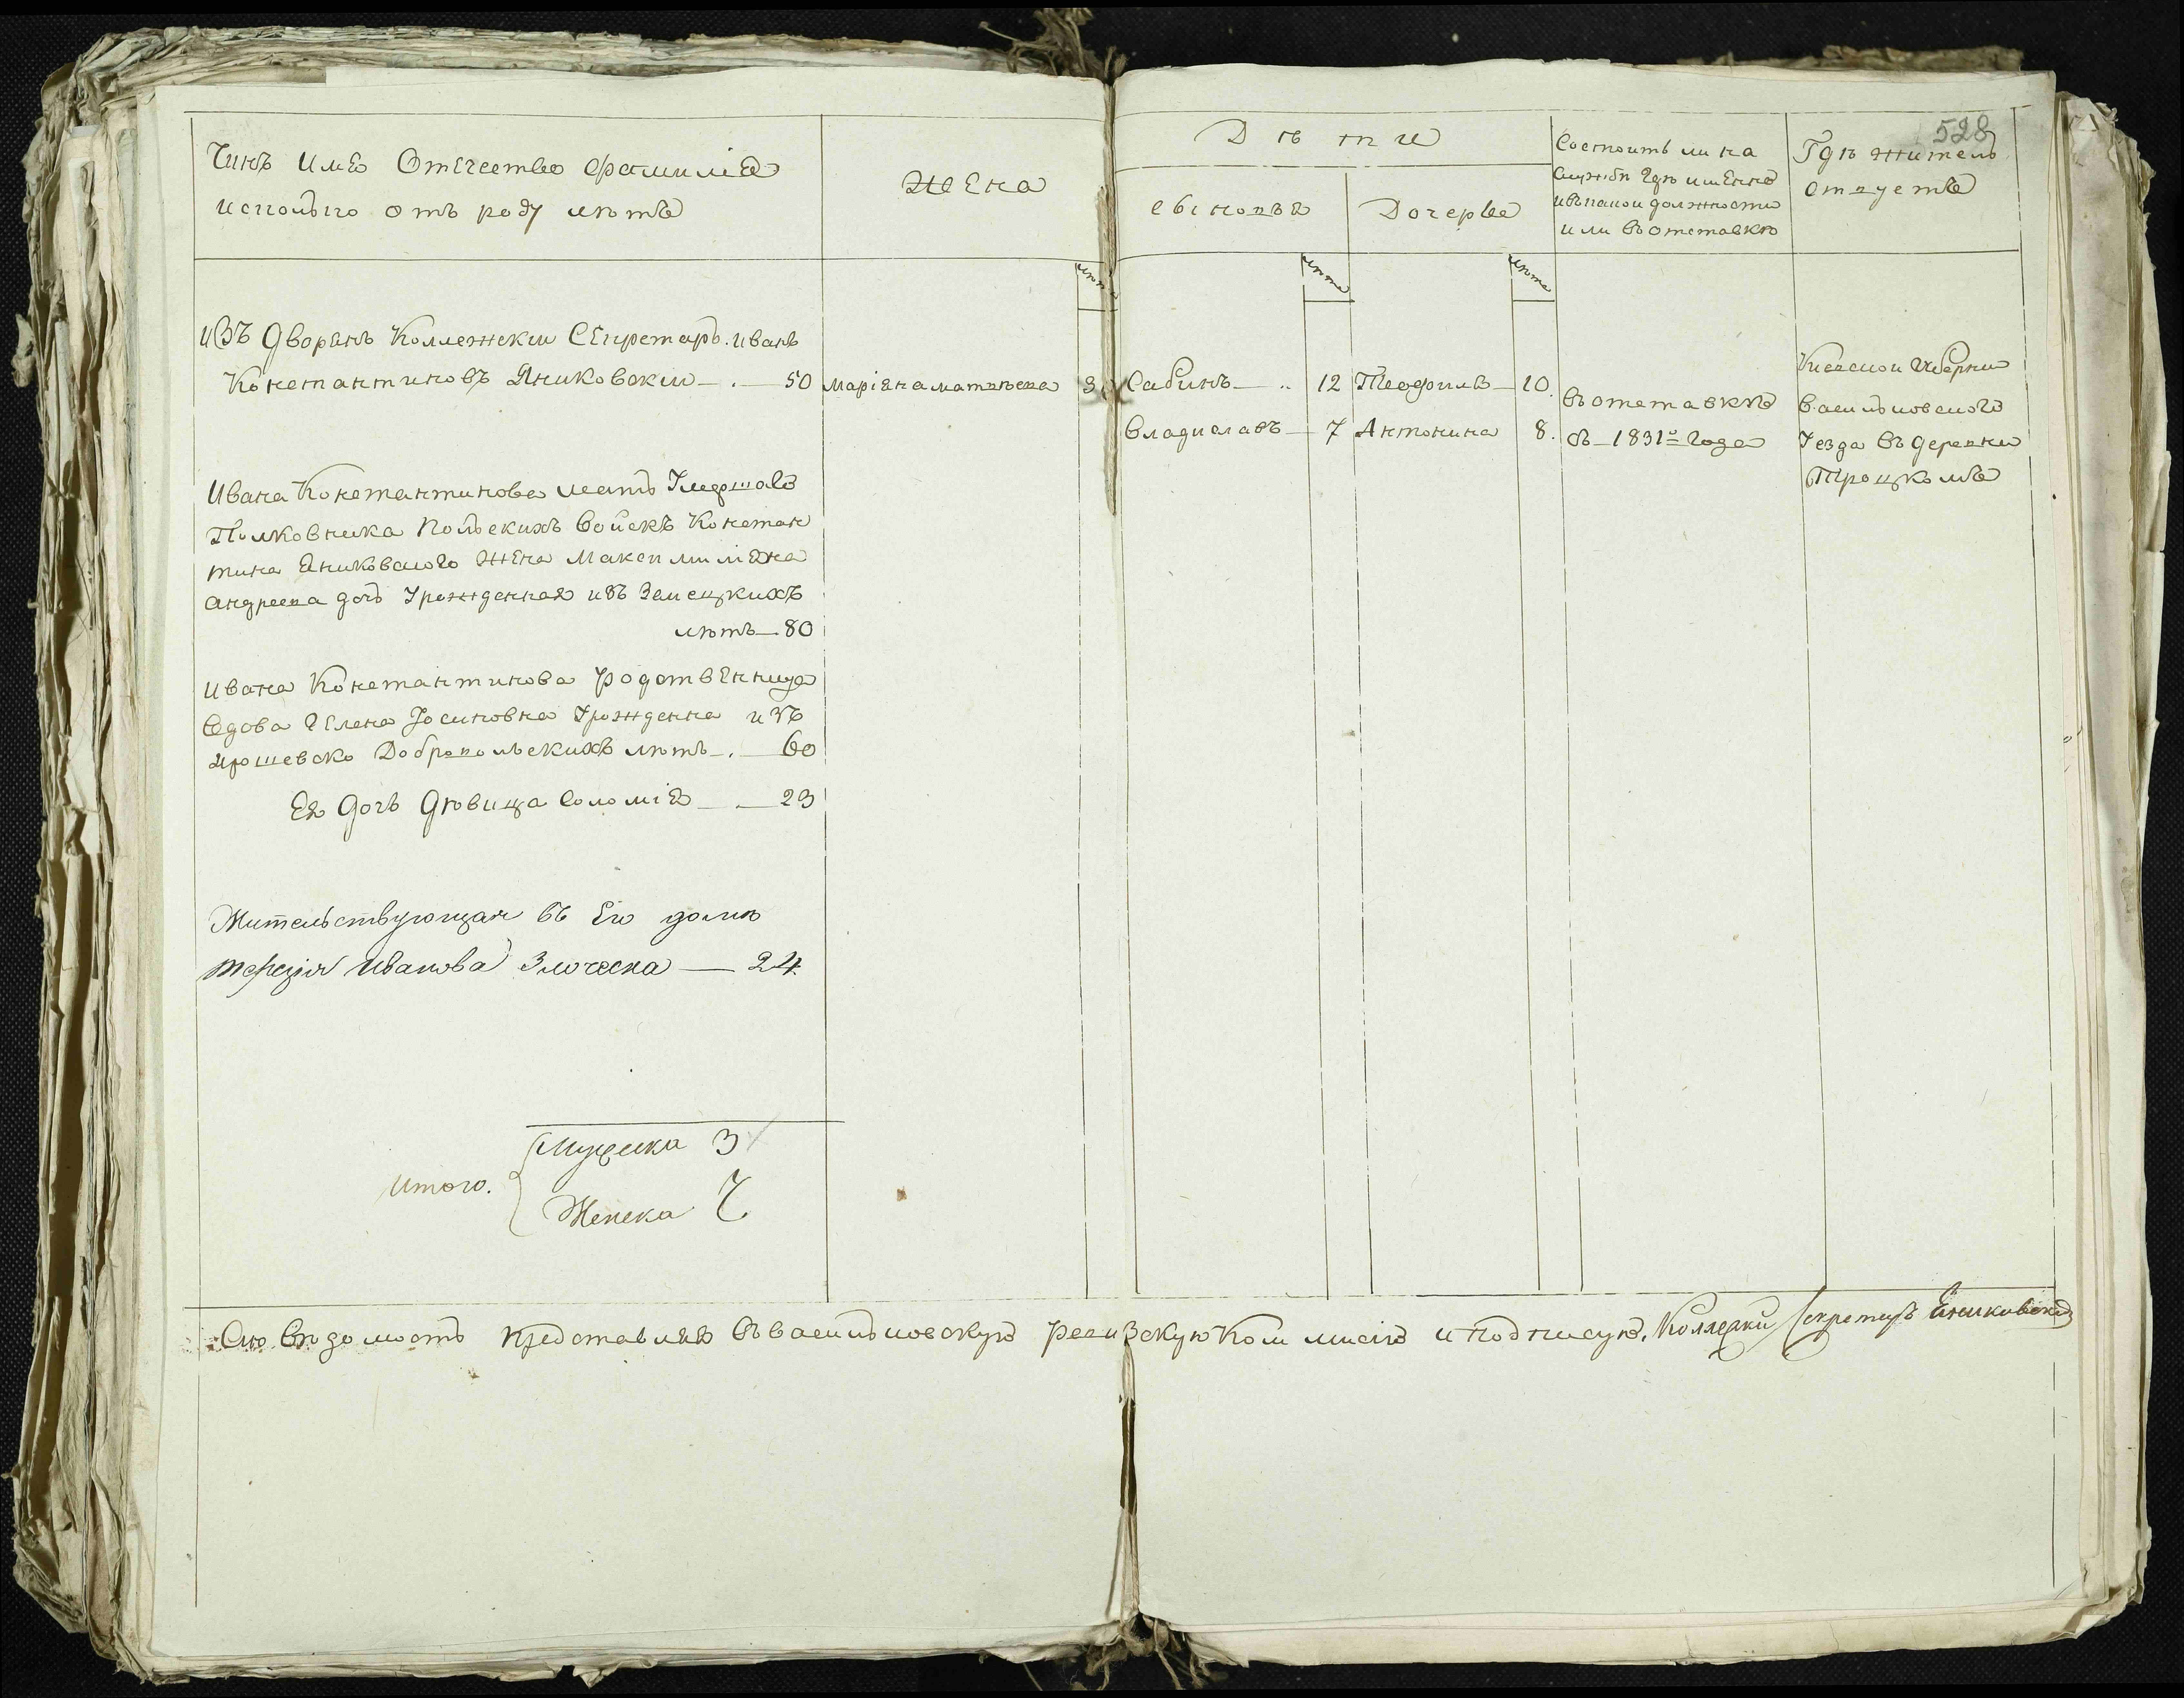 528
Чинъ имя Отечество фамилія
исполного отъ роду лѣтъ
жена
Дѣти
сыновья
Дочеры
Состоитъ ли на
службѣ гдѣ именно
ивъ какои должности
или въ отставкѣ
Гдѣ житель
ствуетъ
лѣтъ
лѣтъ
лѣтъ
изъ Дворянъ Коллежски Секретарь. иванъ
Константиновъ Яниковскии — . — 50
маріяна матвѣева
Сабинъ — .. 12
Теофиля — 10.
Владиславъ — 7
Антонина 8.
въ отставкѣ
съ 1831го года
Киевской Губерни
василковского
Уезда въ деревни
Троцкомъ
Ивана Константинова мать Умершаго
Полковника Польскихъ войскъ Констан
тина Яниковского жена Максимиліяна
андреева дочь Урожденная изъ Залецкихъ
лѣтъ — 80
ивана Константинова родственница
вдова Гелена Иосиповна Урожденна изъ
Ярошевско Добровольскихъ лѣтъ — . — 60
Ея дочь дѣвица Соломія — . — 23
Жительствующая въ Его домѣ
терезія Иванова — 24.
Итого.
Мужеска 3
Женска 7
Сию вѣдомость представляю въ васильковскую ревизскую Коммисію и подписую. Коллежки Секретарь Яниковски